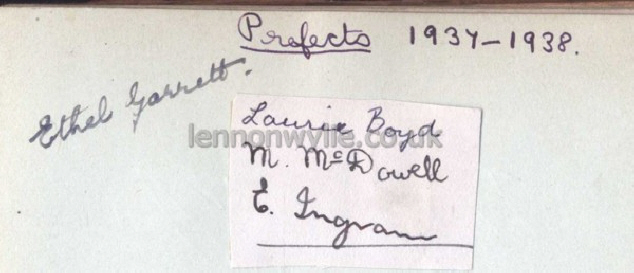 Prefects 1937-1938.
Ethel Garrett.
Laurie Boyd
lennonwylie.co.uk
M. McDowell
E. Ingram